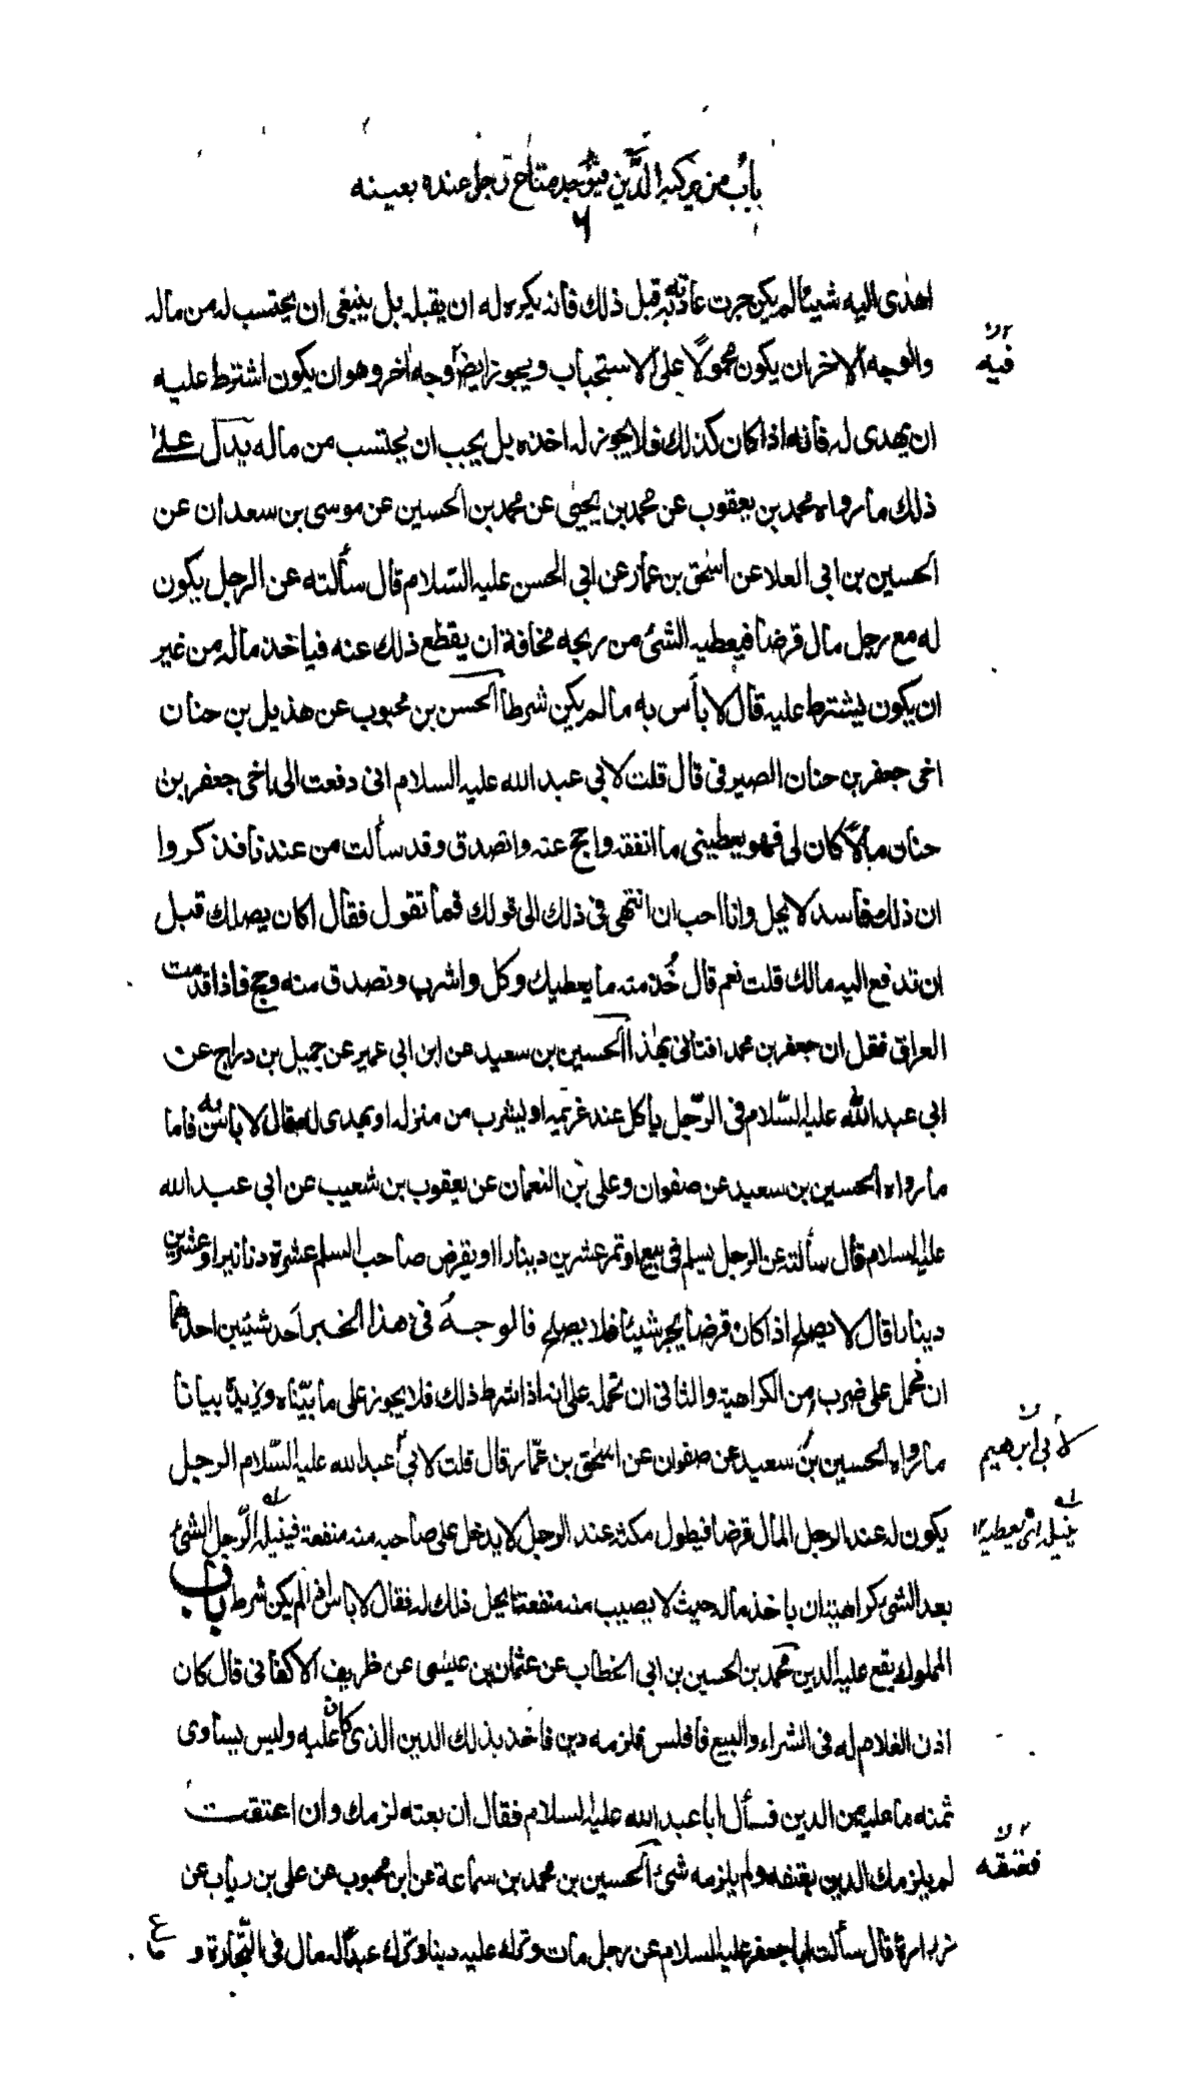 باب من يركبه الدين فيوجد متاع رجل عنده بعينه
٦
اهدى اليه شيئا لم يكن جرت عادته به قبل ذلك فانه يكره له ان يقبله بل ينبغى ان يحتسب له من ماله
والوجه الاخر ان يكون محمولا على الاستحباب ويجوز ايضا وجه اخر وهو ان يكون اشترط عليه
فيه
ان يهدى له فانه اذا كان كذلك فلا يجوز له اخذه بل يجب ان يحتسب من ماله يدل على
ذلك ما رواه محمد بن يعقوب عن محمد بن يحيى عن محمد بن الحسين عن موسى بن سعدان عن
الحسين بن ابى العلا عن اسحق بن عمار عن ابى الحسن عليه السلام قال سألته عن الرجل يكون
له مع رجل مال قرضا فيعطيه الشئ من ربحه مخافة ان يقطع ذلك عنه فياخذ ماله من غير
ان يكون يشترط عليه قال لا بأس به ما لم يكن شرطا الحسن بن محبوب عن هذيل بن حنان
اخى جعفر بن حنان الصيرفى قال قلت لابى عبد الله عليه السلام انى دفعت الى اخى جعفر بن
حنان مالا كان لى فهو يعطينى ما انفقه واحج عنه واتصدق وقد سألت من عندنا فذكروا
ان ذلك فاسد لا يحل وانا احب ان انتهى فى ذلك الى قولك فما تقول فقال اكان يصلك قبل
ان تدفع اليه مالك قلت نعم قال خذ منه ما يعطيك وكل واشرب وتصدق منه وحج فاذا قدمت
العراق فقل ان جعفر بن محمد افتانى بهذا الحسين بن سعيد عن ابن ابى عمير عن جميل بن دراج عن
ابى عبد الله عليه السلام فى الرجل يأكل عند غريمه او يشرب من منزله او يهدى له فقال لا بأس به فاما
ما رواه الحسين بن سعيد عن صفوان وعلى بن النعمان عن يعقوب بن شعيب عن ابى عبد الله
عليه السلام قال سألته عن الرجل يسلم فى بيع او تمر عشرين دينارا او يقرض صاحب السلم عشرة دنانير او عشرين
دينارا قال لا يصلح اذا كان قرضا يجر شيئا فلا يصلح فالوجه فى هذا الخبر احد شيئين احدهما
ان نحمل على ضرب من الكراهية والثانى ان نحمله على انه اذا شرط ذلك فلا يجوز على ما بيناه ويزيده بيانا
ما رواه الحسين بن سعيد عن صفوان عن اسحق بن عمار قال قلت لابى عبد الله عليه السلام الرجل
لابى ابرهيم
يكون له عند الرجل المال قرضا فيطول مكثه عند الرجل لا يدخل على صاحبه منه منفعة فينيله الرجل الشئ
ينيله اى يعطيه ١٢
بعد الشئ كراهية ان ياخذ ماله حيث لا يصيب منه منفعة ايحل ذلك له فقال لا باس اذا لم يكن شرط باب
المملوك يقع عليه الدين محمد بن الحسين بن ابى الخطاب عن عثمان بن عيسى عن ظريف الاكفانى قال كان
اذن الغلام له فى الشراء والبيع فافلس فلزمه دين فاخذ بذلك الدين الذى كان عليه وليس يساوى
ثمنه ما عليه من الدين فسأل ابا عبد الله عليه السلام فقال ان بعته لزمك وان اعتقت
لم يلزمك الدين بعتقه ولم يلزمه شئ الحسين بن محمد بن سماعة عن ابن محبوب عن على بن رياب عن
زرارة قال سألت ابا جعفر عليه السلام عن رجل مات وترك عليه دينا وترك عبدا له مال فى التجارة و